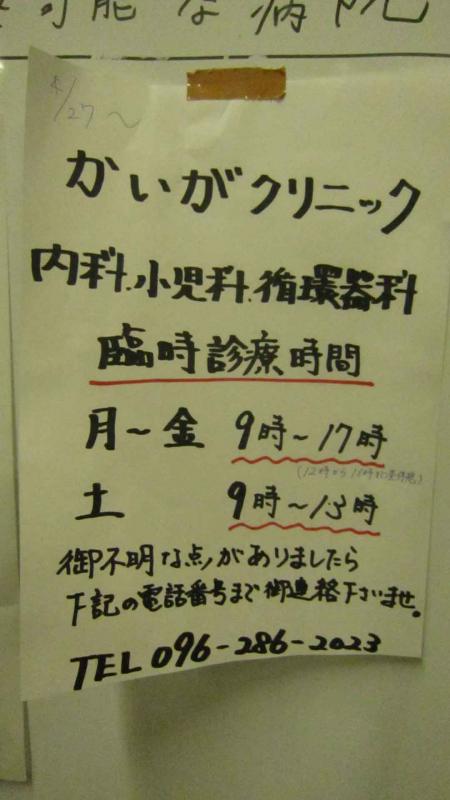 可能な病院
4/27〜
かいがクリニック
内科.小児科.循環器科
臨時診療時間
月〜金 9時〜17時
(12時から
土 9時〜13時
御不明な点がありましたら
下記の電話番号まで御連絡下さいませ。
TEL 096-286-2023